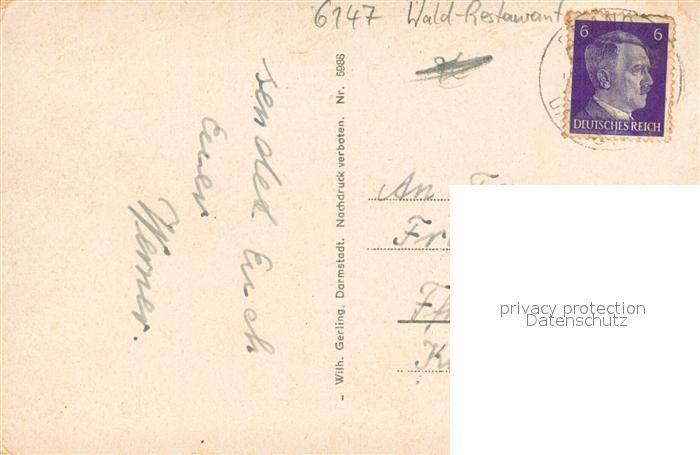 6147 Wald-Restaurant
6 6
DEUTSCHES REICH
sendet Euch
Euer
Werner.
– Wilh. Gerling, Darmstadt. Nachdruck verboten. Nr. 5988
An
privacy protection
Datenschutz